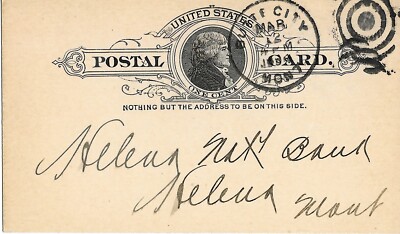 UNITED STATES
BUTTE CITY
MAR
12
MONT.
POSTAL CARD.
ONE CENT
NOTHING BUT THE ADDRESS TO BE ON THIS SIDE.
Helena Nat'l Bank
Helena
Mont